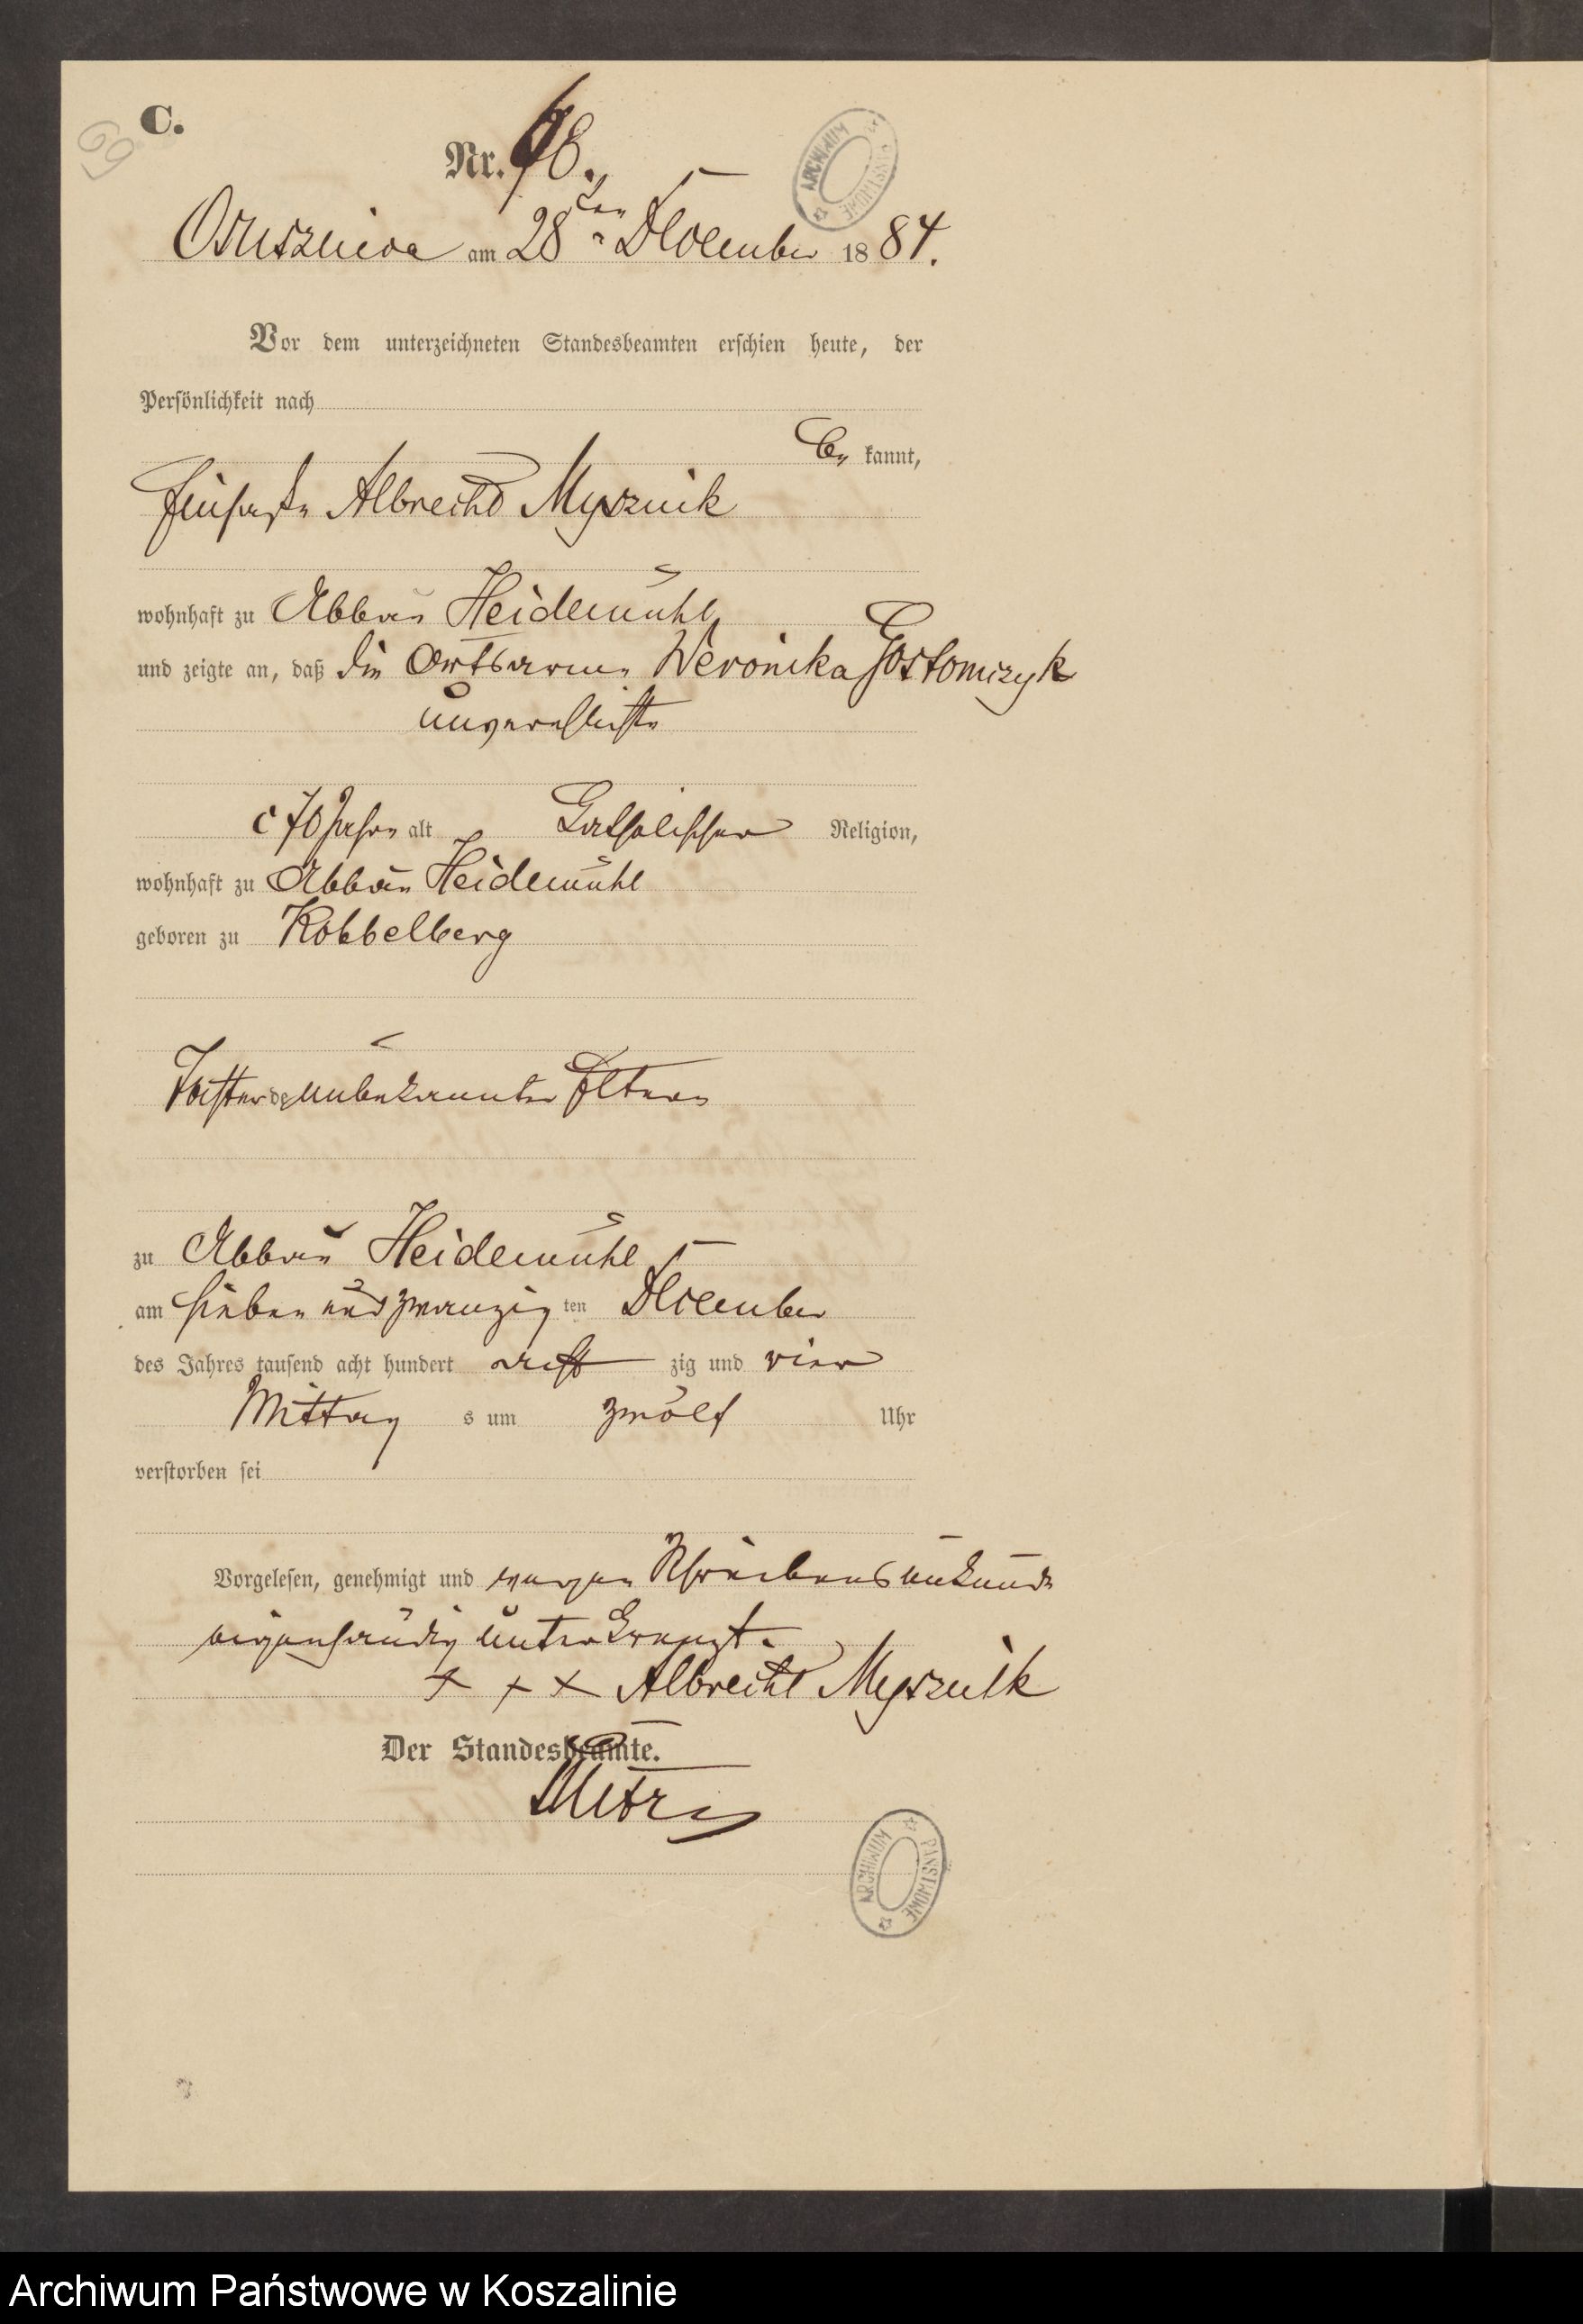 69
C.
Nr. 68.
ARCHIWUM PAŃSTWOWE
Osusznica am 28ten December 1884.
Vor dem unterzeichneten Standesbeamten erschien heute, der
Persönlichkeit nach
be kannt,
Albrecht Mysznik
wohnhaft zu Abbau Heidemühl
und zeigte an, daß die Ortsarme Weronika Gostomczyk
unverehlichte
c 70 Jahre alt Catholischer Religion,
wohnhaft zu Abbau Heidemühl
geboren zu Kobbelberg
Tochter der unbekannten Eltern
zu Abbau Heidemühl
am sieben und zwanzig ten December
des Jahres tausend acht hundert acht zig und vier
Mittag s um zwölf Uhr
verstorben sei
Vorgelesen, genehmigt und wegen Schreibensunkunde
eigenhändig unterkreuzt.
+ + + Albrecht Mysznik
Der Standesbeamte.
ARCHIWUM PAŃSTWOWE
Archiwum Państwowe w Koszalinie